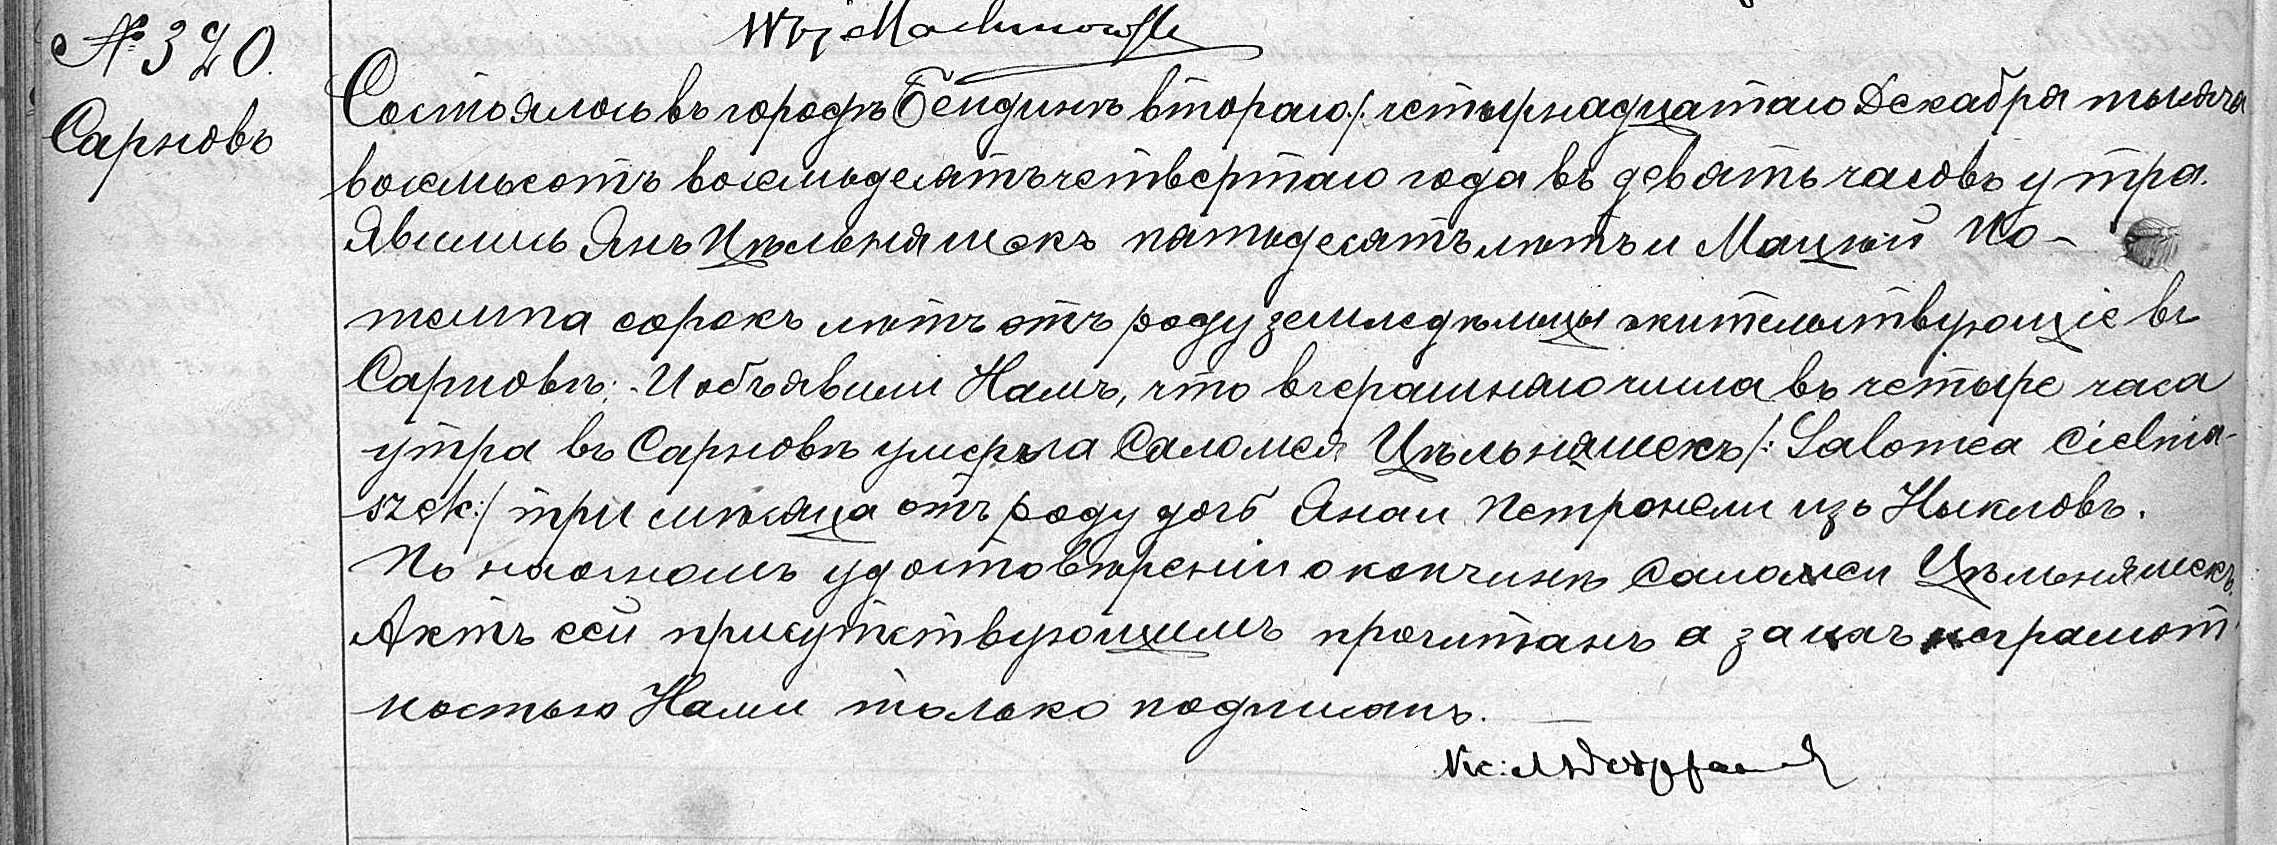 № 320.
Сарновъ
Состоялось въ городѣ Бендинѣ втораго /: четырнадцатаго Декабря тысяча
восемьсотъ восемьдесятъ четвертаго года въ девять часовъ утра.
Явились Янъ Цѣльняшекъ пятьдесятъ лѣтъ и Мацѣй По-
темпа сорокъ лѣтъ отъ роду земледѣльцы жительствующіе въ
Сарновѣ. И объявили Намъ, что вчерашняго числа въ четыре часа
утра въ Сарновѣ умерла Саломея Цѣльняшекъ /: Salomea Cielnia-
szek :/ три мѣсяца отъ роду дочь Яна и Петронели изъ Ныкловъ.
По настномъ удостовѣреніи о кончинѣ Саломеи Цѣльняшекъ.
Актъ сей присутствующимъ прочитанъ а за ихъ неграмот-
ностью Нами только подписанъ.